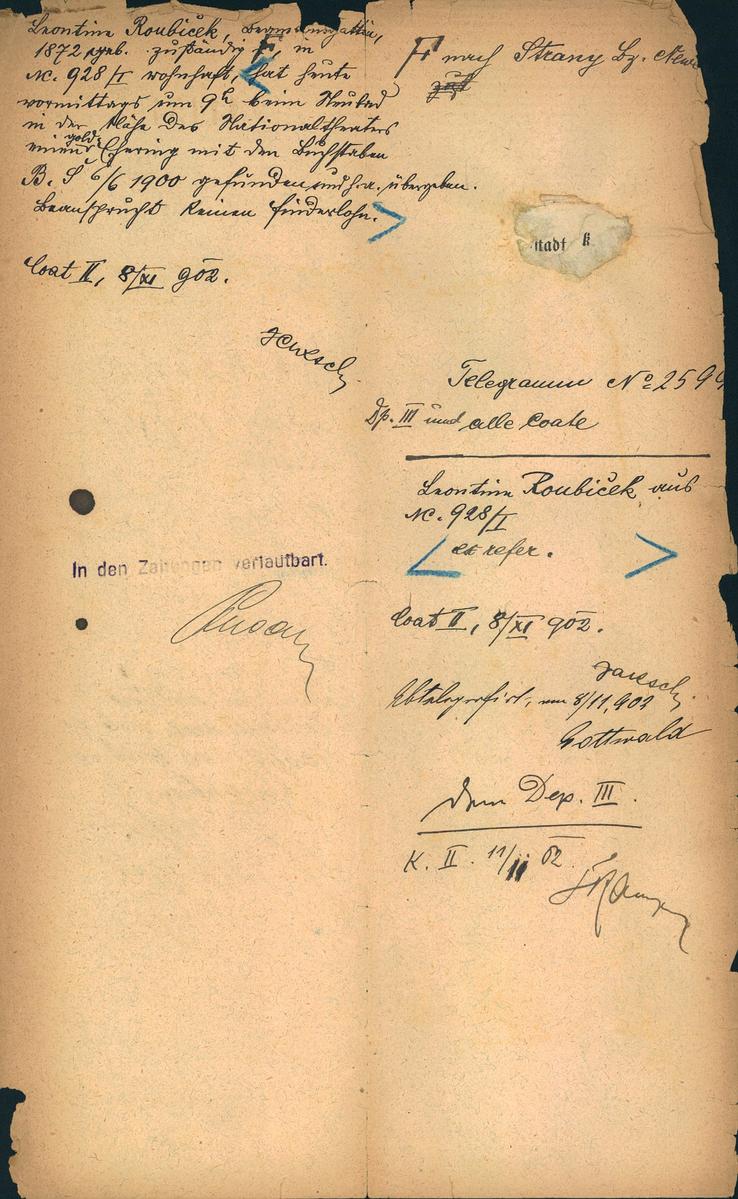 Leontine Roubiček, Beamtensgattin,
1872 geb. zuständig F, in
Nc. 928/I wohnhaft, hat heute
vormittags um 9h beim Neubad
in der Nähe des Nationaltheaters
einen gold. Ehering mit den Buchstaben
B. S 6/6 1900 gefunden und h.a. übergeben.
Beansprucht keinen Finderlohn.
Coat II, 8/XI 902.
F nach Strany Bz.
zust
stadt K
Telegramm No 2594
Dp. III und alle Coate
Leontine Roubiček aus
Nc. 928/I
ex refer.
Coat II, 8/XI 902.
8/11, 902
Gottwald
In den Zeitungen verlautbart.
dem Dep. III.
K. II. 11/11 02